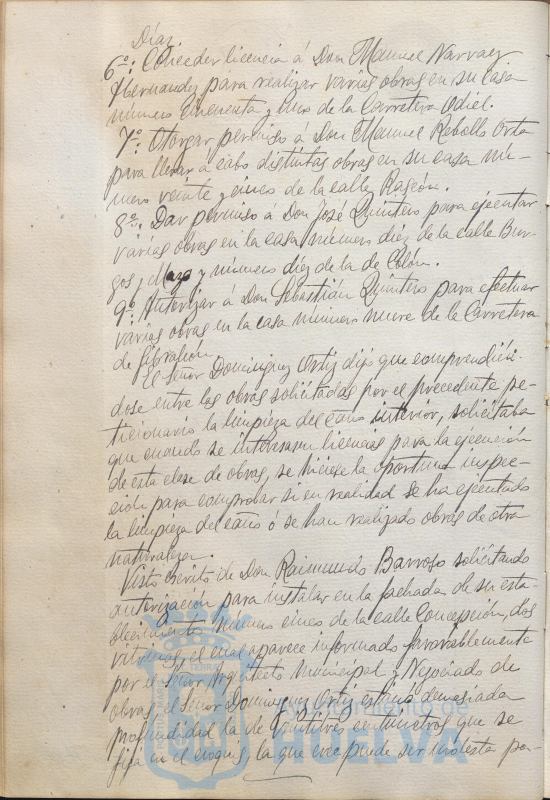 Díaz.
6º: Conceder licencia á Don Manuel Narvaez
Hernandez para realizar varias obras en su casa
número cincuenta y uno de la Carretera Odiel.
7º: Otorgar permiso á Don Manuel Rebollo Orta
para llevar a cabo distintas obras en su casa nú-
mero veinte y cinco de la calle Rascón.
8º: Dar permiso á Don José Quintero para ejecutar
varias obras en la casa número diez de la calle Bur-
gos y Mazo y número diez de la de Colón.
9º: Autorizar á Don Sebastián Quintero para efectuar
varias obras en la casa número nueve de la Carretera
de Gibraleón.
El Señor Dominguez Ortiz dijo que comprendién-
dose entre las obras solicitadas por el precedente pe-
ticionario la limpieza del caño interior, solicitaba
que cuando se interesaran licencias para la ejecución
de esta clase de obras, se hiciese la oportuna inspec-
ción para comprobar si en realidad se ha ejecutado
la limpieza del caño ó se han realizado obras de otra
naturaleza.
Visto escrito de Don Raimundo Barroso solicitando
autorización para instalar en la fachada de su esta-
blecimiento número cinco de la calle Concepción, dos
vitrinas, el cual aparece informado favorablemente
por el Señor Arquitecto Municipal y Negociado de
obras, el Señor Dominguez Ortiz estimó demasiada
profundidad la de veintitres centímetros que se
fija en el croquis, la que cree puede ser molesta pa-
Ayuntamiento de
HUELVA